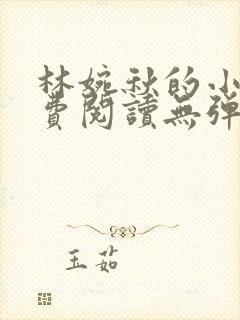 林婉秋的小
費閱讀無彈
玉茹